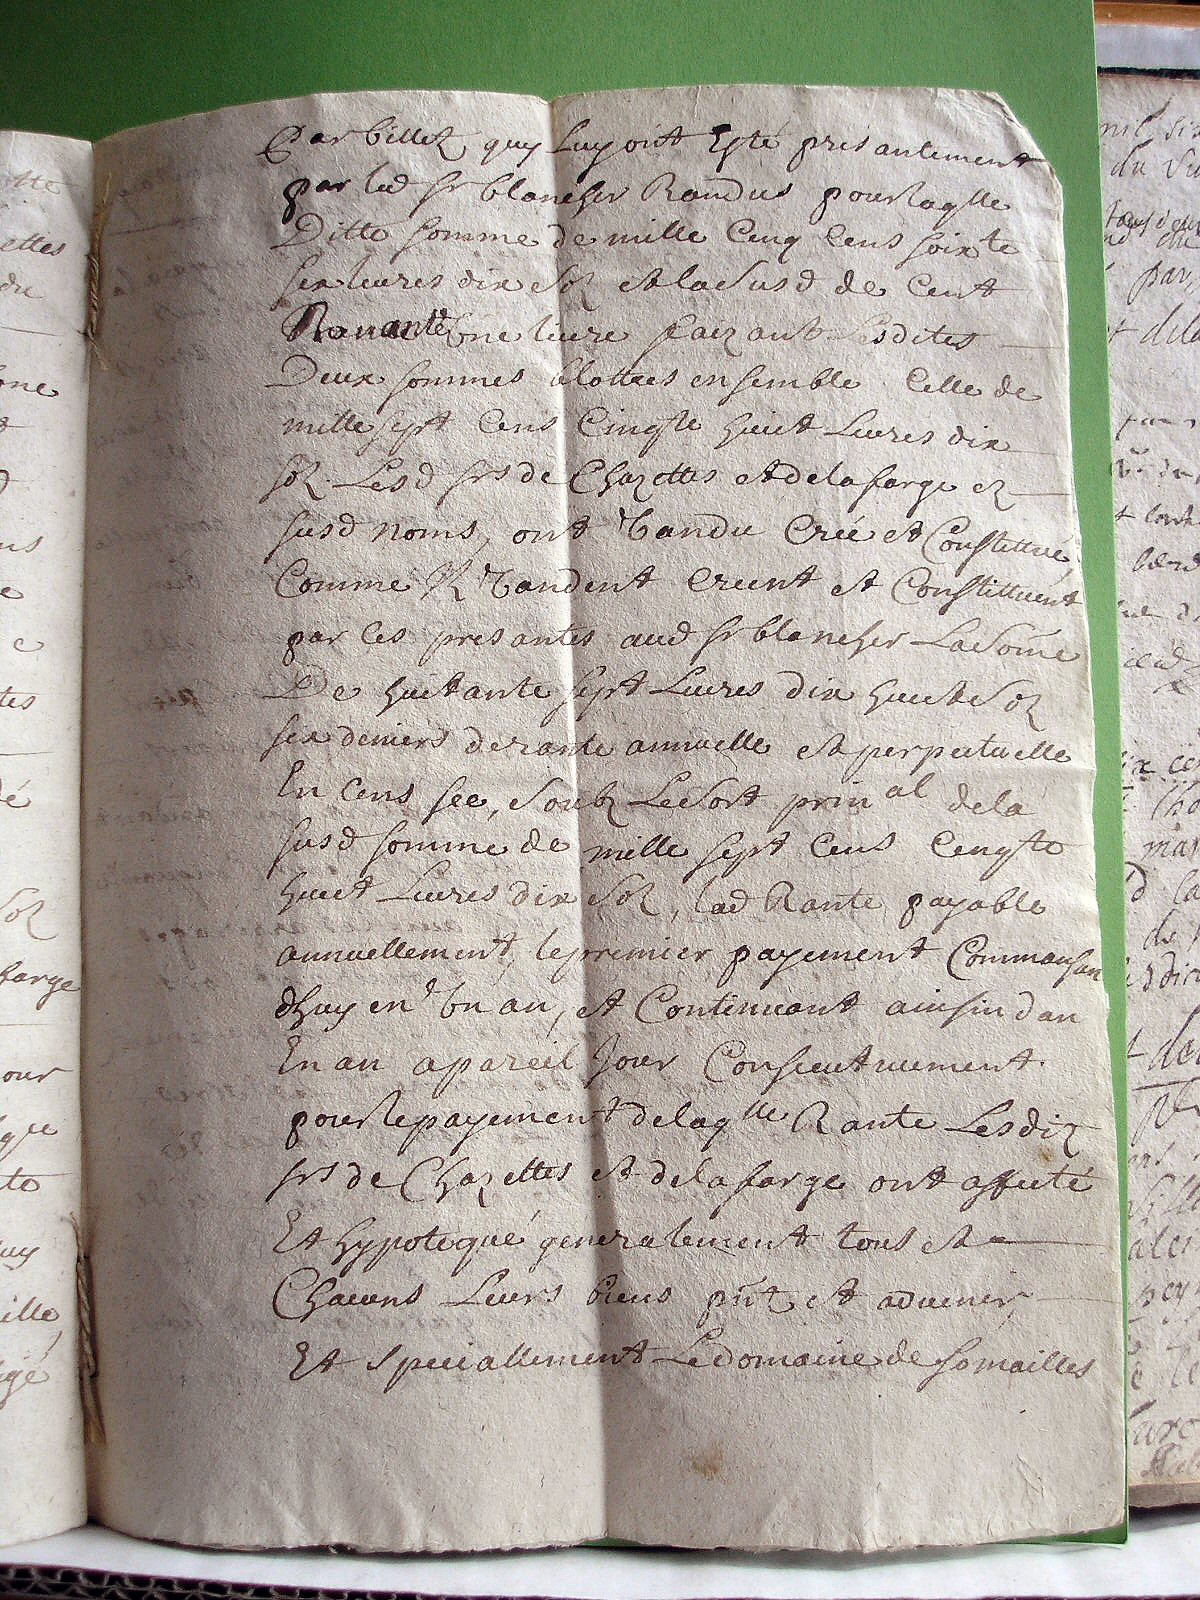 Par billet quy luy ont Esté presantement
par led sr blancher Randus pour laqlle
Ditte somme de mille Cinq Cens soixte
six liures dix solz et la susd de Cent
Nonante Une liure faizant Lesdites
Deux sommes blottes ensemble Celle de
mille sept Cens Cinqte huict Liures dix
solz Lesd srs de Chazettes et delafarge ez
susd noms, ont Vandu Creé et Constittué
Comme Ilz Vandent Creent et Constittuent
par ces presantes aud sr blancher La Some
De huictante sept Liures dix huict solz
six deniers de rante annuelle et perpetuelle
En Cens sec, soubz Le Sort prinal dela
susd somme de mille sept Cens Cinqte
huict Liures dix Solz, lad Rante payable
annuellement, le premier payement Commansan
dhuy en Un an, et Continuant ainsin dan
En an a pareil Jour Consecutiuement
pour le payement de laqlle Rante Lesditz
srs de Chazettes et delafarge ont affecté
Et hypotequé generalement tous et
Chacuns Leurs biens pnt et aduenir,
Et speciallement Le domaine de somailles
ettes
du
one
solz
farge
our
ille
du
par